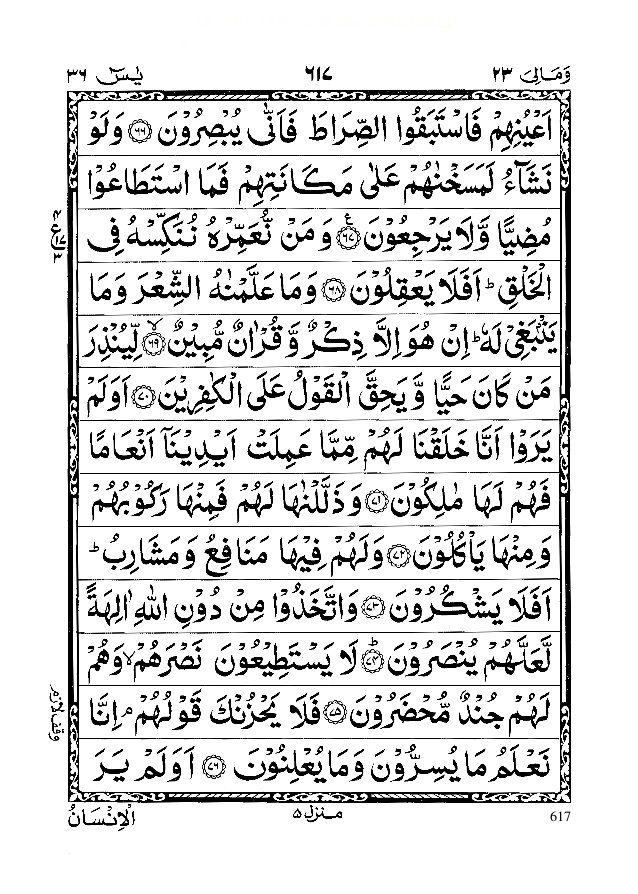 وَمَالِیَ ٢٣
٦١٧
یٰسٓ ٣٦
اَعْیُنِهِمْ فَاسْتَبَقُوا الصِّرَاطَ فَاَنّٰی یُبْصِرُوْنَ ﴿٦٦﴾ وَلَوْ
نَشَآءُ لَمَسَخْنٰهُمْ عَلٰی مَكَانَتِهِمْ فَمَا اسْتَطَاعُوْا
مُضِیًّا وَّلَا یَرْجِعُوْنَ ﴿٦٧﴾ ع وَمَنْ نُّعَمِّرْهُ نُنَكِّسْهُ فِی
الْخَلْقِ ؕ اَفَلَا یَعْقِلُوْنَ ﴿٦٨﴾ وَمَا عَلَّمْنٰهُ الشِّعْرَ وَمَا
یَنْۢبَغِیْ لَهٗ ؕ اِنْ هُوَ اِلَّا ذِكْرٌ وَّ قُرْاٰنٌ مُّبِیْنٌ ﴿٦٩﴾ لا لِّیُنْذِرَ
مَنْ كَانَ حَیًّا وَّ یَحِقَّ الْقَوْلُ عَلَی الْكٰفِرِیْنَ ﴿٧٠﴾ اَوَلَمْ
یَرَوْا اَنَّا خَلَقْنَا لَهُمْ مِّمَّا عَمِلَتْ اَیْدِیْنَاۤ اَنْعَامًا
فَهُمْ لَهَا مٰلِكُوْنَ ﴿٧١﴾ وَ ذَلَّلْنٰهَا لَهُمْ فَمِنْهَا رَكُوْبُهُمْ
وَ مِنْهَا یَاْكُلُوْنَ ﴿٧٢﴾ وَلَهُمْ فِیْهَا مَنَافِعُ وَ مَشَارِبُ ؕ
اَفَلَا یَشْكُرُوْنَ ﴿٧٣﴾ وَاتَّخَذُوْا مِنْ دُوْنِ اللّٰهِ اٰلِهَةً
لَّعَلَّهُمْ یُنْصَرُوْنَ ﴿٧٤﴾ ؕ لَا یَسْتَطِیْعُوْنَ نَصْرَهُمْ ۙ وَهُمْ
لَهُمْ جُنْدٌ مُّحْضَرُوْنَ ﴿٧٥﴾ فَلَا یَحْزُنْكَ قَوْلُهُمْ ۘ اِنَّا
نَعْلَمُ مَا یُسِرُّوْنَ وَمَا یُعْلِنُوْنَ ﴿٧٦﴾ اَوَلَمْ یَرَ
٤ ع ١٧ ٣
وقف لازم
الْاِنْسَانُ
منزل ٥
617